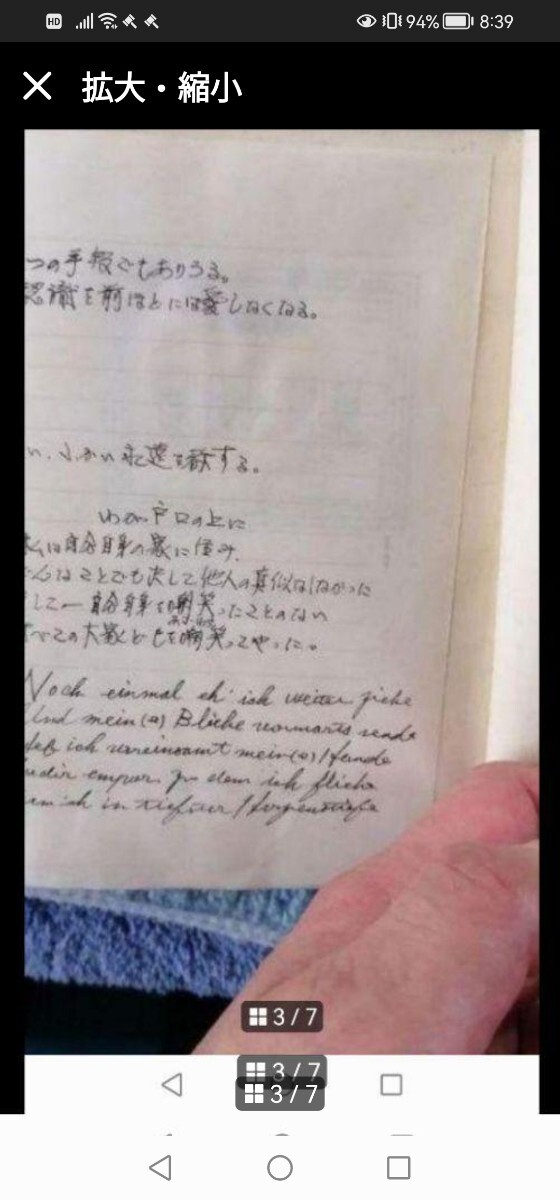 HD 94% 8:39
拡大・縮小
つの手段でもありうる。
認識を前ほどには愛しなくなる。
い、ふかい永遠を欲する。
わが戸口の上に
私は自分自身の家に住み、
なことでも決して他人の真似なしなかった
して 自分自身を嘲笑ったことのない
すべての大家どもを嘲笑ってやった。
Noch einmal eh' ich weiter ziehe
Und mein(e) Blicke vorwärts sende
ich vereinsamt mein(e) Hände
empor zu dem ich fliehe
ich in tiefster Herzenstiefe
3 / 7
3 / 7
3 / 7